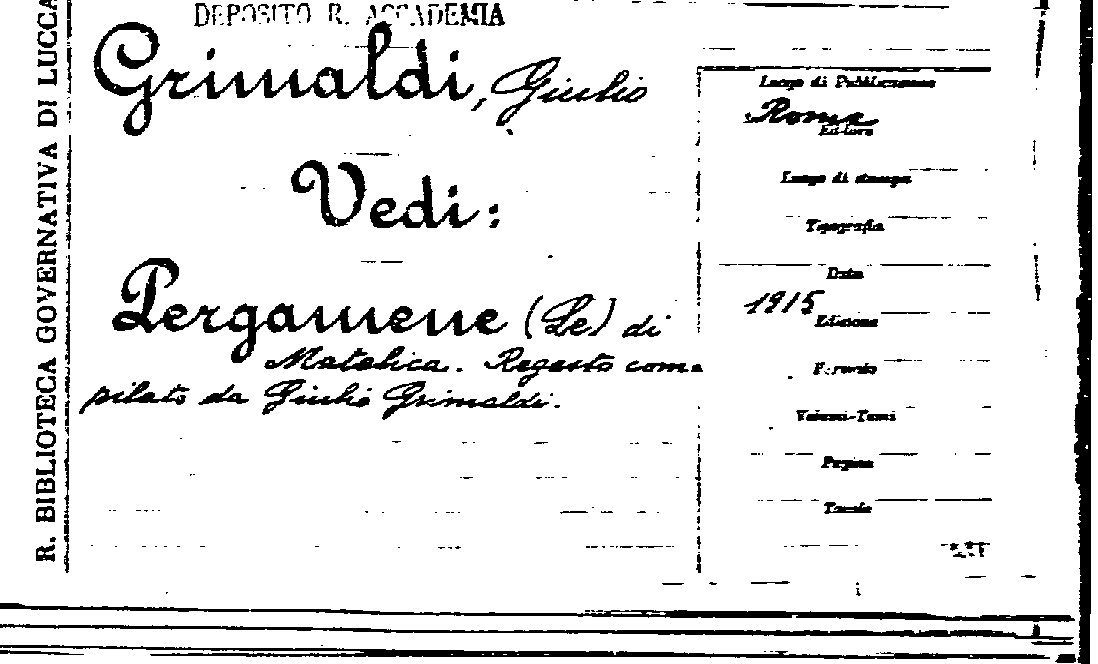 DEPOSITO R. ACCADEMIA
R. BIBLIOTECA GOVERNATIVA DI LUCCA
Grimaldi, Giulio
Vedi:
Pergamene (Le) di
Matelica. Regesto com-
pilato da Giulio Grimaldi.
Luogo di Pubblicazione
Roma
Editore
Luogo di stampa
Tipografia
Data
1915
Edizione
Formato
Volumi-Tomi
Pagine
Tavole